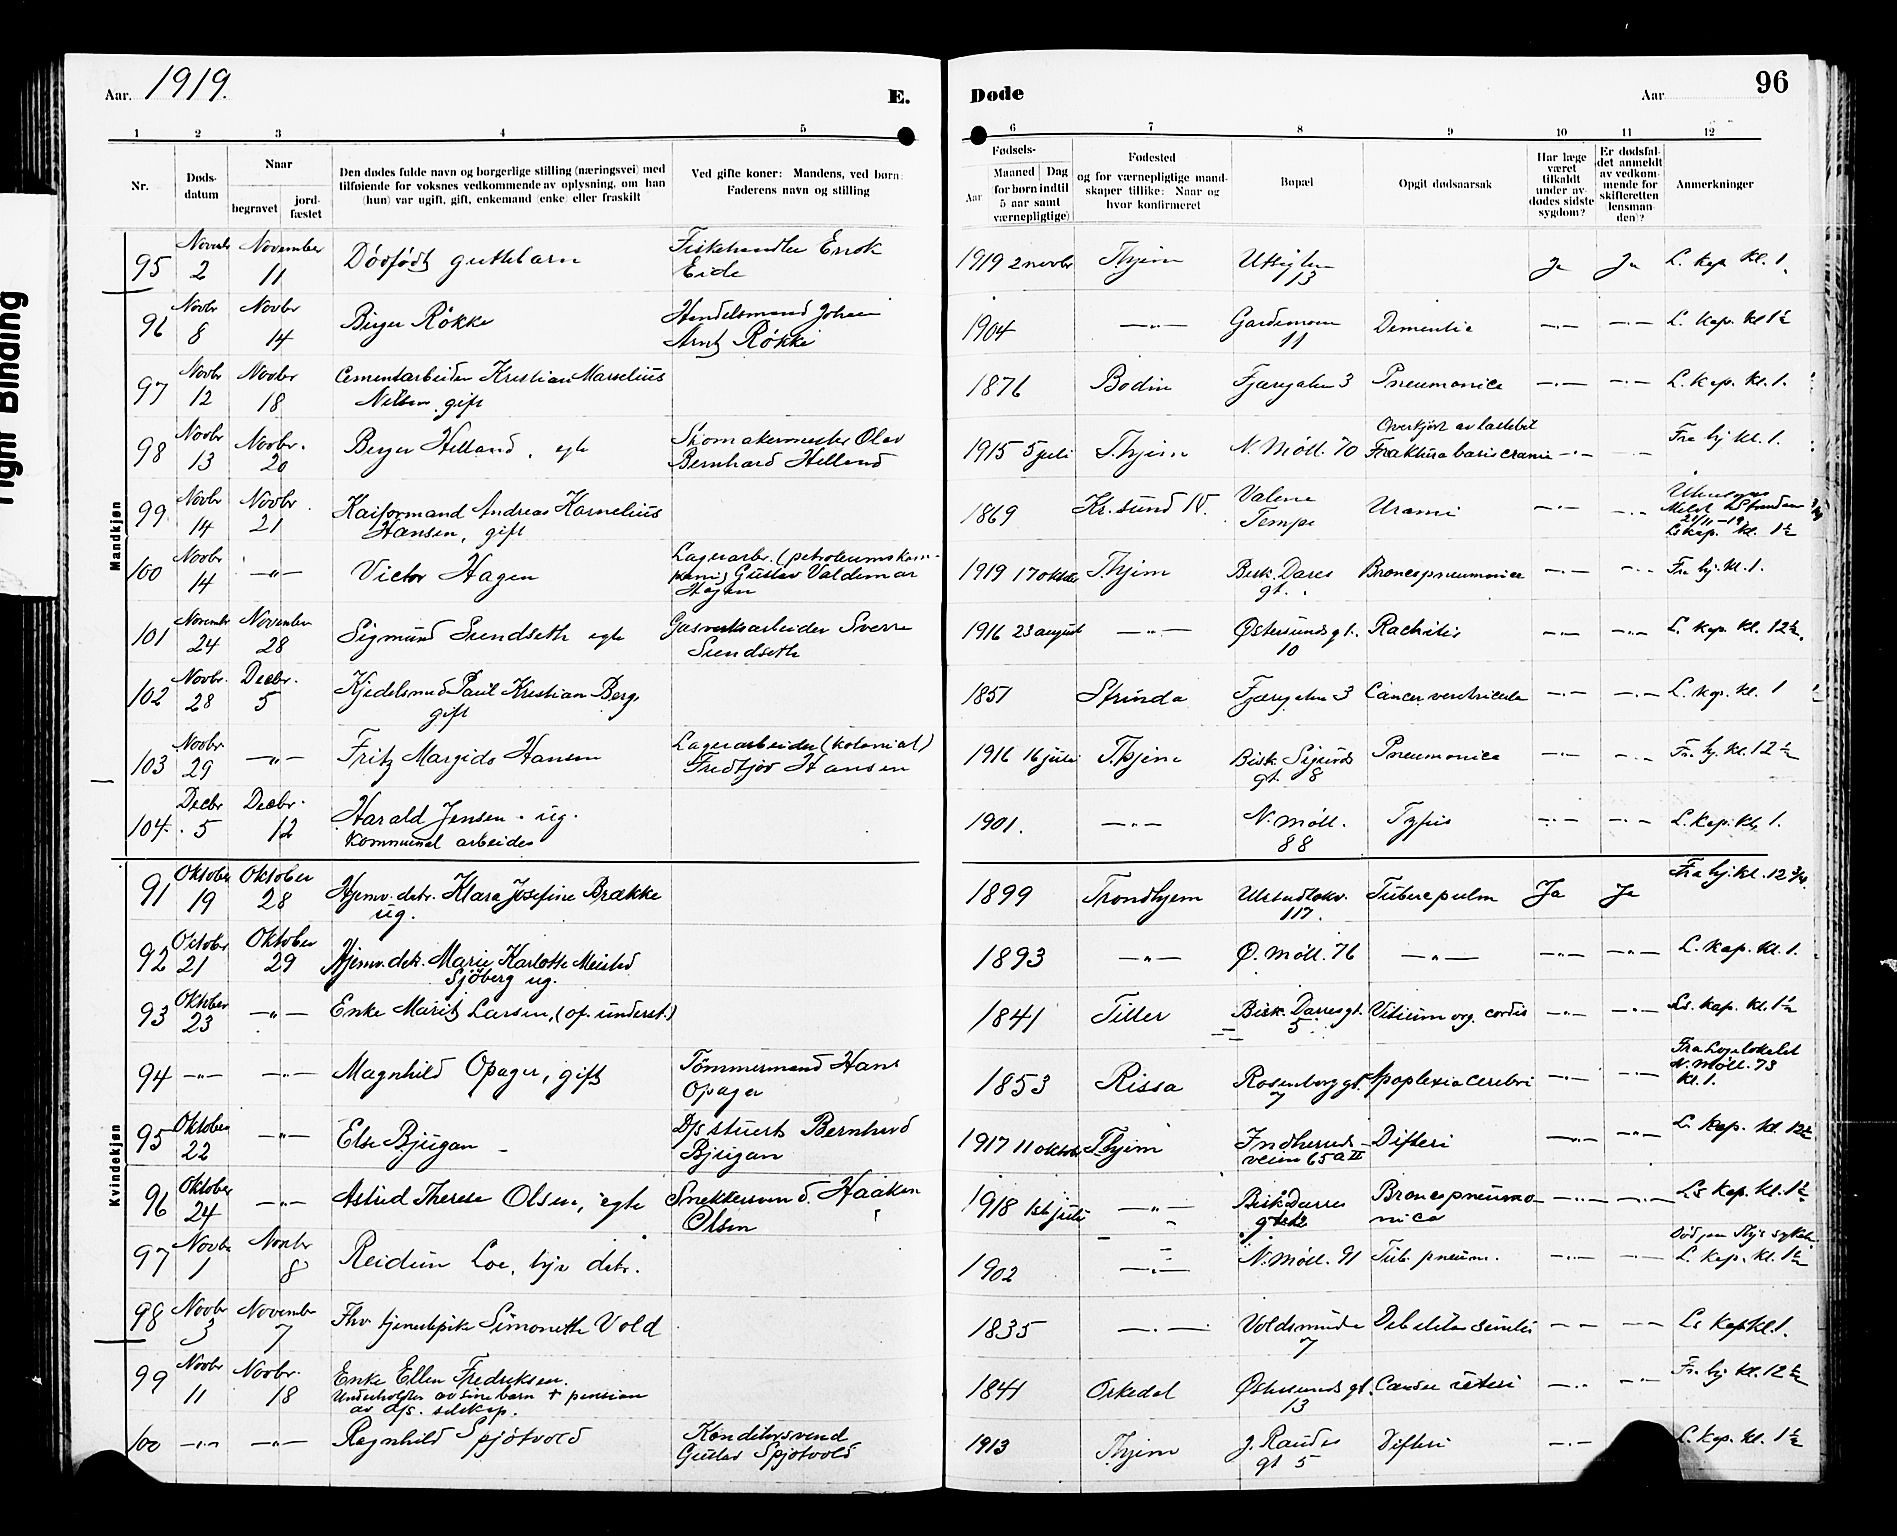 Tight Binding
Aar. 1919.
E.
Døde
Aar
96
1 2 3 4 5 6 7 8 9 10 11 12
Nr.
Døds-
datum
Naar
begravet
jord-
fæstet
Den dødes fulde navn og borgerlige stilling (næringsvei) med
tilføiende for voksnes vedkommende av oplysning, om han
(hun) var ugift, gift, enkemand (enke) eller fraskilt
Ved gifte koner: Mandens, ved børn:
Faderens navn og stilling
Fødsels-
Aar
Maaned Dag
(for børn indtil
5 aar samt
værnepligtige)
Fødested
og for værnepligtige mand-
skaper tillike: Naar og
hvor konfirmeret
Bopæl
Opgit dødsaarsak
Har læge
været
tilkaldt
under av-
dødes sidste
sygdom?
Er dødsfal-
det anmeldt
av vedkom-
mende for
skifteretten
(lensman-
den)?
Anmerkninger
Mandkjøn
95 2 November 11 Dødfødt guttebarn Fiskehandler Enok
Eide 1919 2 novbr T.hjem 13 Ja Ja L. kap. kl. 1.
96 Novbr 8 Novbr 14 Birger Røkke Handelsmand Johan
Arnt Røkke 1904 —"— 11 Dementia —"— —"— L. kap. kl 1½
97 Novbr 12 Novbr 18 Cementarbeider Kristian Marselius
Nilsen gift 1876 Bodin Fjærgaten 3 Pneumonica —"— —"— L. kap. kl. 1.
98 Novbr 13 Novbr. 20 Birger Helland, egte Skomakermester Olav
Bernhard Helland 1915 5 juli T.hjem N. Møll. 70 Overkjørt av lastebil
Fraktura basis cranii —"— —"— Fra hj kl. 1.
99 Novbr 14 Novbr 21 Kaiformand Andreas Kornelius
Hansen, gift 1869 Kr.sund N. Valene
Tempe Urami —"— —"—
21/11-19
kl. 1½
100 Novbr 14 —"— Victor Hagen Lagerarb. (petroleumskom-
pani) Gustav Valdemar
Hagen 1919 17 oktbr T.hjem Bisk. Dares
gt. Broncopneumonica —"— —"— Fra hj. kl. 1.
101 Novembr 24 November 28 Sigmund Svendseth egte Gasverksarbeider Sverre
Svendseth 1916 23 august —"— Østersunds gt.
10 Rachitis —"— —"— L. kap. kl. 12½.
102 Novbr. 28 Decbr. 5 Paul Kristian Berg,
gift 1851 Strinda Fjærgaten 3 Cancer ventriculi —"— —"— L. kap. kl. 1
103 Novbr 29 —"— Fritz Margido Hansen Lagerarbeider (kolonial)
Fredtjov Hansen 1916 16 juli T.hjem Bisk Sigurds
gt. 8 Pneumonica —"— —"— Fra hj. kl. 12½
104. Decbr 5 Decbr. 12 Harald Jensen. ug.
kommunal arbeider 1901. —"— N. Møll.
88 Tyfus —"— —"— L. kap. kl. 1.
Kvindekjøn
91 Oktober 19 Oktober 28 Hjemv. datr. Klara Josefine Brække
ug. 1899 Trondhjem 117. Tuberc pulm Ja Ja Fra hj. kl. 12¾.
92 Octobr 21 Oktober 29 Hjemv. datr. Marie Karlotte
Sjöberg ug. 1893 —"— Ø. Møll. 76 —"— —"— —"— L. kap. kl. 1.
93 Oktober 23 —"— Enke Marit Larsen, (of. underst.) 1841 Tiller Bisk. Darres gt.
5 Vitium org. cordis —"— —"— Ls. kap. kl. 1½
94 —"— —"— Magnhild Opager, gift Tömmermand Hans
Opager 1853 Rissa Rosenborg gt.
7 Apoplexia cerebri —"— —"— Fra Logelokalet
N. Møll. 73
kl. 1.
95 Oktober 22 —"— Else Bjugan D/s stuert Bernhard
Bjugan 1917 11 oktober T.hjem Indherreds-
veien 65 a II Difteri —"— —"— L. kap. kl. 12½
96 Oktober 24 —"— Astrid Therese Olsen, egte Snekkersvend. Haaken
Olsen 1918 1st juli —"— Bisk Darres Broncopneumo-
nica —"— —"— Ls kap. kl. 1½
97 Novbr 1 Novbr 8 Reidun Loe, hjv datr. 1902 —"— N. Møll. 91 Tub. pneum. —"— —"— Död paa Thjs sykeh.
L. kap. kl. 1½
98 Novbr 3 November 7 Fhv. tjenestepike Simonette Vold 1835 —"— Voldsminde
7 Debilitas senilis —"— —"— Ls kap kl. 1.
99 Novbr 11 Novbr. 18 Enke Ellen Fredriksen.
Underholdes av sine barn + pension
av d/s. selskap. 1841 Orkedal Østersunds gt.
13 Cancer uteri —"— —"— Fra hj kl. 12½
100 —"— —"— Ragnhild Spjøtvold Konditorsvend
Gustav Spjøtvold 1913 T.hjem J. Raudes
gt 5 Difteri —"— L. kap. kl. 1½